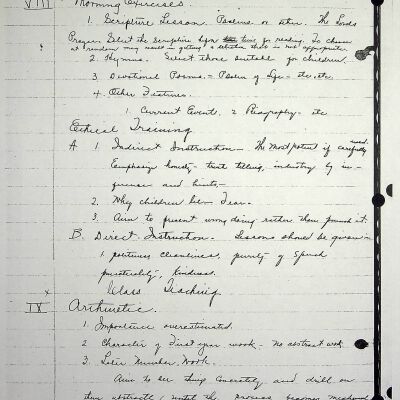 VIII Morning Exercises
1. Scripture Lesson. Psalms or other. The Lords
Prayer. Select the Scripture before time for reading. To choose
at random may result in getting a selection that is not appropriate.
2. Hymns. Select those suitable for children.
3. Devotional Poems = Psalm of Life = etc. etc.
4 Other Features.
1. Current Events. 2 Biography - etc
Ethical Training
A 1. Indirect Instruction - The most potent if carefully used.
Emphasize honesty - truth telling, industry by in-
ference and hints -
2. Why children
3. Aim to present wrong doing rather than punish it
B. Direct Instruction. Lessons should be given in
cleanliness, purity of speech
punctuality, kindness.
Class Teaching
IX Arithmetic.
1. Importance overestimated.
2 Character of First year work - No abstract work
3. Later Number Work.
Aim to see thing concretely and drill on
them abstractly until the process becomes mechanical